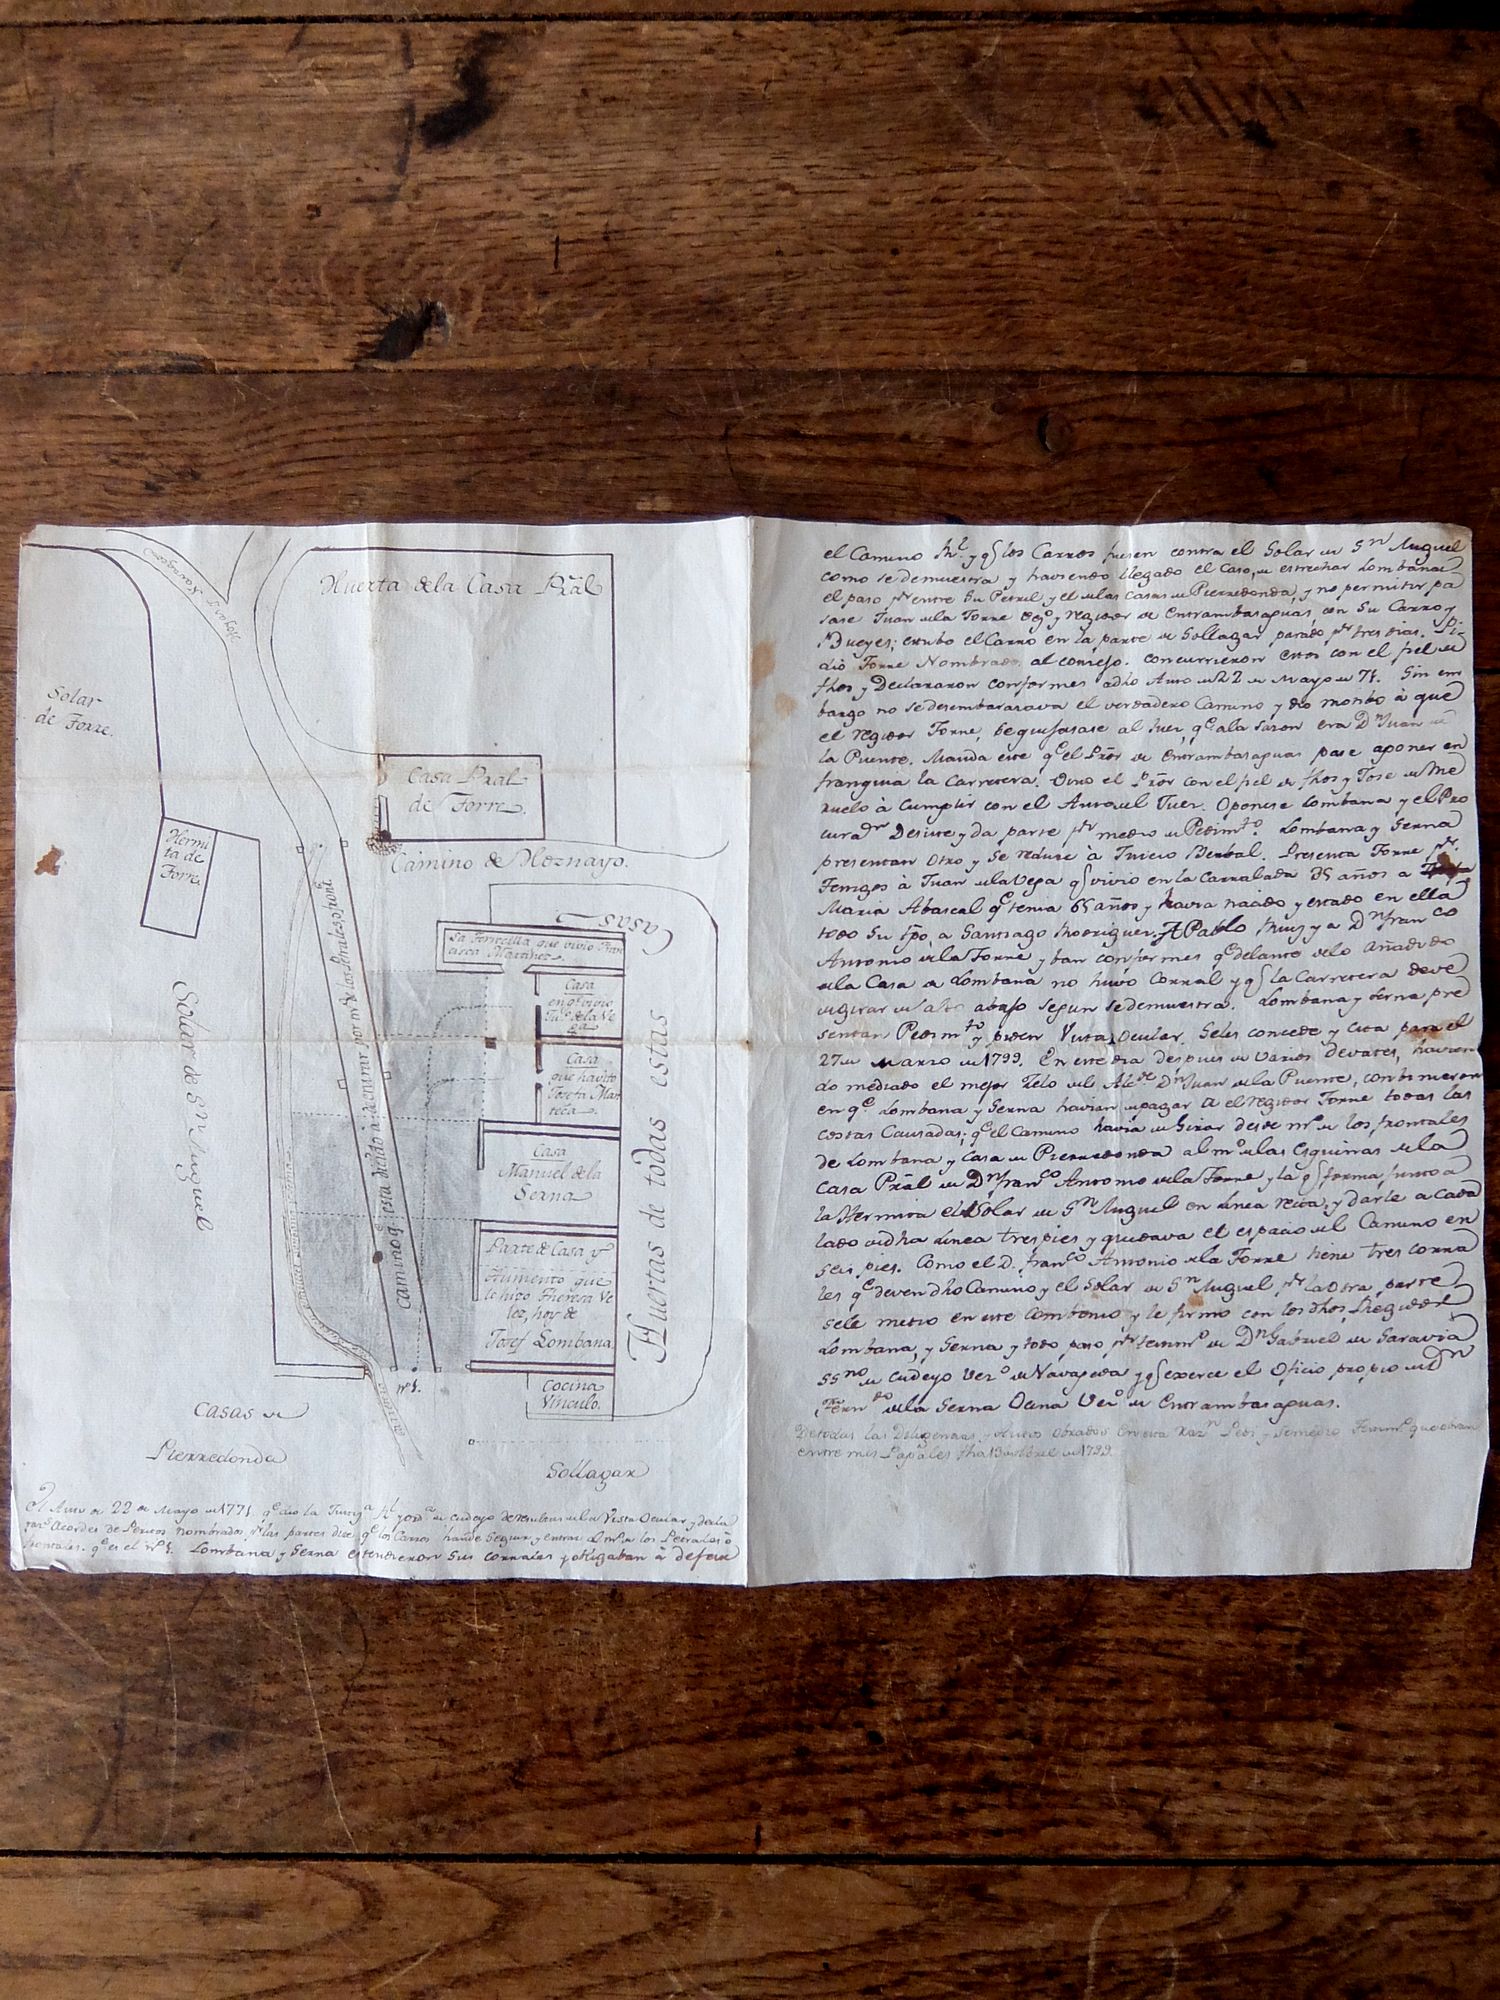 Huerta de la Casa Rãl
Solar
de Torre.
Casa Pral
de Torre.
Hermi
ta de
Torre
Camino de Hoznayo.
Casas
La Torrecilla que vivio Fran
cisca Martinez
Casa
en qe vivio
Juo de la Ve
ga
Casa
que havito
Josefa Man
teca
Casa
Manuel de la
Serna
Parte de Casa y
Aumento que
le hizo Theresa Ve
lez, hoy de
Josef Lombana
Cocina
Vinculo.
Huertas de todas estas
Solar de Sn Miguel
Camino qe esta decidido à de cruzar por
nº 1.
Casas de
Pierredonda
Sollagar
El Auto de 22 de Mayo de 1771. qe dio la Justiza y orda de Cudeyo de resultas de la Vista Ocular y decla
racs Acordes de Peritos nombrados pr las partes dize qe los Carros hande Seguir y entrar de los Petrales ò
frontales. qe es el nº 1. Lombana y Serna estendieron Sus corrales y obligaban à dejar
el Camino Rl. y qe los Carros fuesen contra el Solar de Sn Miguel
como se demuestra y haviendo llegado el caso, de estrechar Lombana
el paso pr entre Su Petril y el de las Casas de Pierredonda, y no permitir pa
sase Juan de la Torre vco y regidor de Entrambasaguas, con Su Carro y
Bueyes; estubo el Carro en la parte de Sollagar parado pr tres dias. Pi-
dió Torre Nombrado al concejo. concurrieron estos con el fiel de
fhos y Declararon conformes a dho Auto de 22 de Mayo de 71. Sin em
bargo no se desembarazava el verdadero Camino y dio motibo à que
el regidor Torre, Se quejasase al Juez, qe a la sazon era Dn Juan de
la Puente. Manda este qe el Prõr de Entrambasaguas pase a poner en
franquia la Carretera. Vino el Prõr con el fiel de fhos y Jose de Me
ruelo à Cumplir con el Auto del Juez. Oponese Lombana y el Pro
curadr Desiste y da parte pr medio de Pedimto. Lombana y Serna
presentan Otro y Se reduce à Juicio Berbal. Presenta Torre pr
Testigos à Juan de la Vega qe vivio en la Carralada 35 años a
Maria Abascal qe tenia 65 años y havia nacido y estado en ella
todo Su tpo, a Santiago Rodriguez. A Pablo Ruiz y a Dn Franco
Antonio de la Torre y ban conformes qe delante de lo Añadido
de la Casa de Lombana no huvo Corral y qe la Carretera deve
de girar de alto abajo segun se demuestra. Lombana y Serna pre
sentan Pedimto y piden Vista Ocular. Seles concede y cita para el
27 de Marzo de 1799. En este dia despues de varios devates, havien
do mediado el mejor Zelo del Alcde Dn Juan de la Puente, conbinieron
en qe Lombana y Serna havian de pagar a el regidor Torre todas las
costas Causadas; qe el Camino havia de Girar desde nº de los frontales
de Lombana y Casa de Pierredonda al mo de las Esquinas de la
Casa Prãl de Dn Franco Antonio de la Torre y la qe forma junto a
la Hermita el Solar de Sn Miguel en Linea recta, y darle a cada
lado de dha Linea tres pies y quedava el espacio del Camino en
Seis pies. Como el D. Franco Antonio de la Torre tiene tres corra
les qe deven dho Camino y el Solar de Sn Miguel pr la otra parte
Sele metio en este Combenio y le firmo con los dhos Regidor
Lombana, y Serna y todo paso pr testimo de Dn Gabriel de Saravia
SSno de Cudeyo Vezo de Navajeda y qe exerce el Oficio propio de Dn
Ferndo de la Serna Ocina Vezo de Entrambasaguas.
De todas las Diligencias, y Autos obrados En esta Razn Pedi y Semedio Testimo que obran
entre mis Papales fha 13 de Abril de 1799.